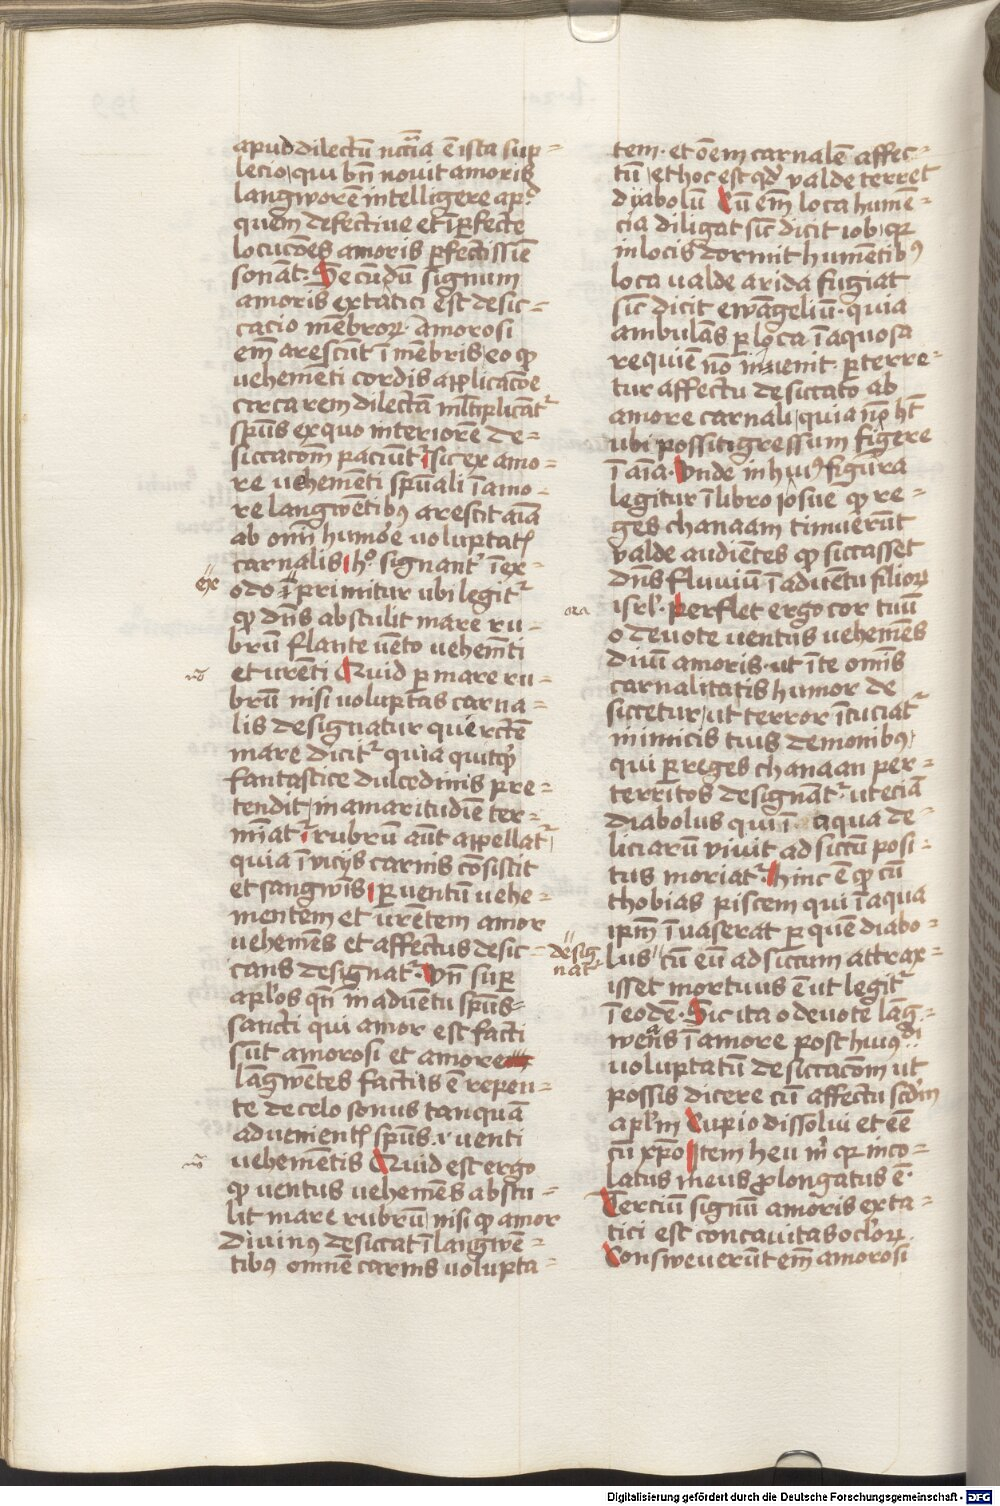 apud dilectū nccīa ē ista sup=
lecio qui bn̄ nouit amoris
langworē intelligere apd
quem defectiue et īperfecte
locucōes amoris perfectissīe
sonāt. Secundū signum
amoris extatici est desic=
cacio mēbrorꝝ. amorosi
em̄ arescūt ī mēbris eo qꝫ
vehemēti cordis applicacōe
circa rem dilectā ml̄tiplicāt᷑
spūs ex quo interiorē de=
siccacōm paciūt᷑ sic ex amo=
re vehemēti spūali ī amo=
re langwētibꝰ arescit aīa
ab om̄i humore voluptatꝭ
carnalis hº signant᷑ ī ex=
ex
odo ī primitur vbi legit᷑
qꝫ dn̄s abstulit mare ru=
brū flante vēto vehemēti
et vrēti Quid per mare ru=
brū nisi voluptas carna=
lis designatur que rectē
mare dicit᷑ quia quitqͥd
fantastice dulcedinis pre=
tendit in amaritudīe ter=
mīat᷑ rubrū aūt appellat᷑
quia ī vicijs carnis cōsistit
et sangwīs per ventū vehe=
mentem et vrētem amor
vehemēs et affectus desic=
cans designat᷑. Vn̄ super
aplōs qn̄ in aduentu spūs=
sancti qui amor est facti
sūt amorosi et amore
lāgwētes factus ē repen=
te de celo sonus tanquā
aduenientꝭ spūs v̄ venti
vehemētis Quid est ergo
qꝫ ventus vehemēs abstu=
lit mare rubrū nisi qꝫ amor
diuinꝰ desiccat ī langwē=
tibꝰ omnē carnis volupta=
tem. et ōēm carnalē affec=
tū et hoc est qd̄ valde terret
dyabolū Cū em̄ loca humē=
cia diligat sic̄ dicit iob qꝫ
in locis dormit humētibꝰ
loca valde arida fugiat
sic̄ dicit ewāgeliū. quia
ambulās per loca īaquosa
requiē nō inuenit. perterre=
tur affectu desiccato ab
amore carnali quia nō ht̄
vbi possit gressum figere
ī aīa. Vnde in huiꝰ figura
legitur ī libro iosue qꝫ re=
ges chanaam timuerūt
valde audiētes qꝫ siccasset
dn̄s fluuiū ī aduētu filiorꝝ
ora
isrl̄. Perflet ergo cor tuū
o deuote ventus vehemēs
diuini amoris. vt ī te omīs
carnalitatis humor de=
siccetur vt terror īcuciat᷑
inimicis tuis demonibꝰ
qui per reges chanaan per=
territos designāt᷑. vt eciā
diabolus qui ī aqua de=
liciarū viuit ad siccū posi=
tus moriat᷑. Hinc ē qꝫ cū
thobias piscem qui ī aqua
ipm̄ īuaserat per quē diabo=
desig
nat᷑
lus cū eū ad siccum attrax=
isset mortuus ē vt legit᷑
ī eodē. Sic ita o deuote lāg=
wens ī amore post huiꝰdi
voluptatū desiccacōm vt
possis dicere cū affectu scd̄m
aplm̄ Cupio dissolui et eē
cū xp̄o Item heu mͥ qꝫ inco=
latus meus prolongatus ē.
Terciū signū amoris exta=
tici est concauitas oclorꝝ.
Consweuerūt em̄ amorosi
Digitalisierung gefördert durch die Deutsche Forschungsgemeinschaft - DFG